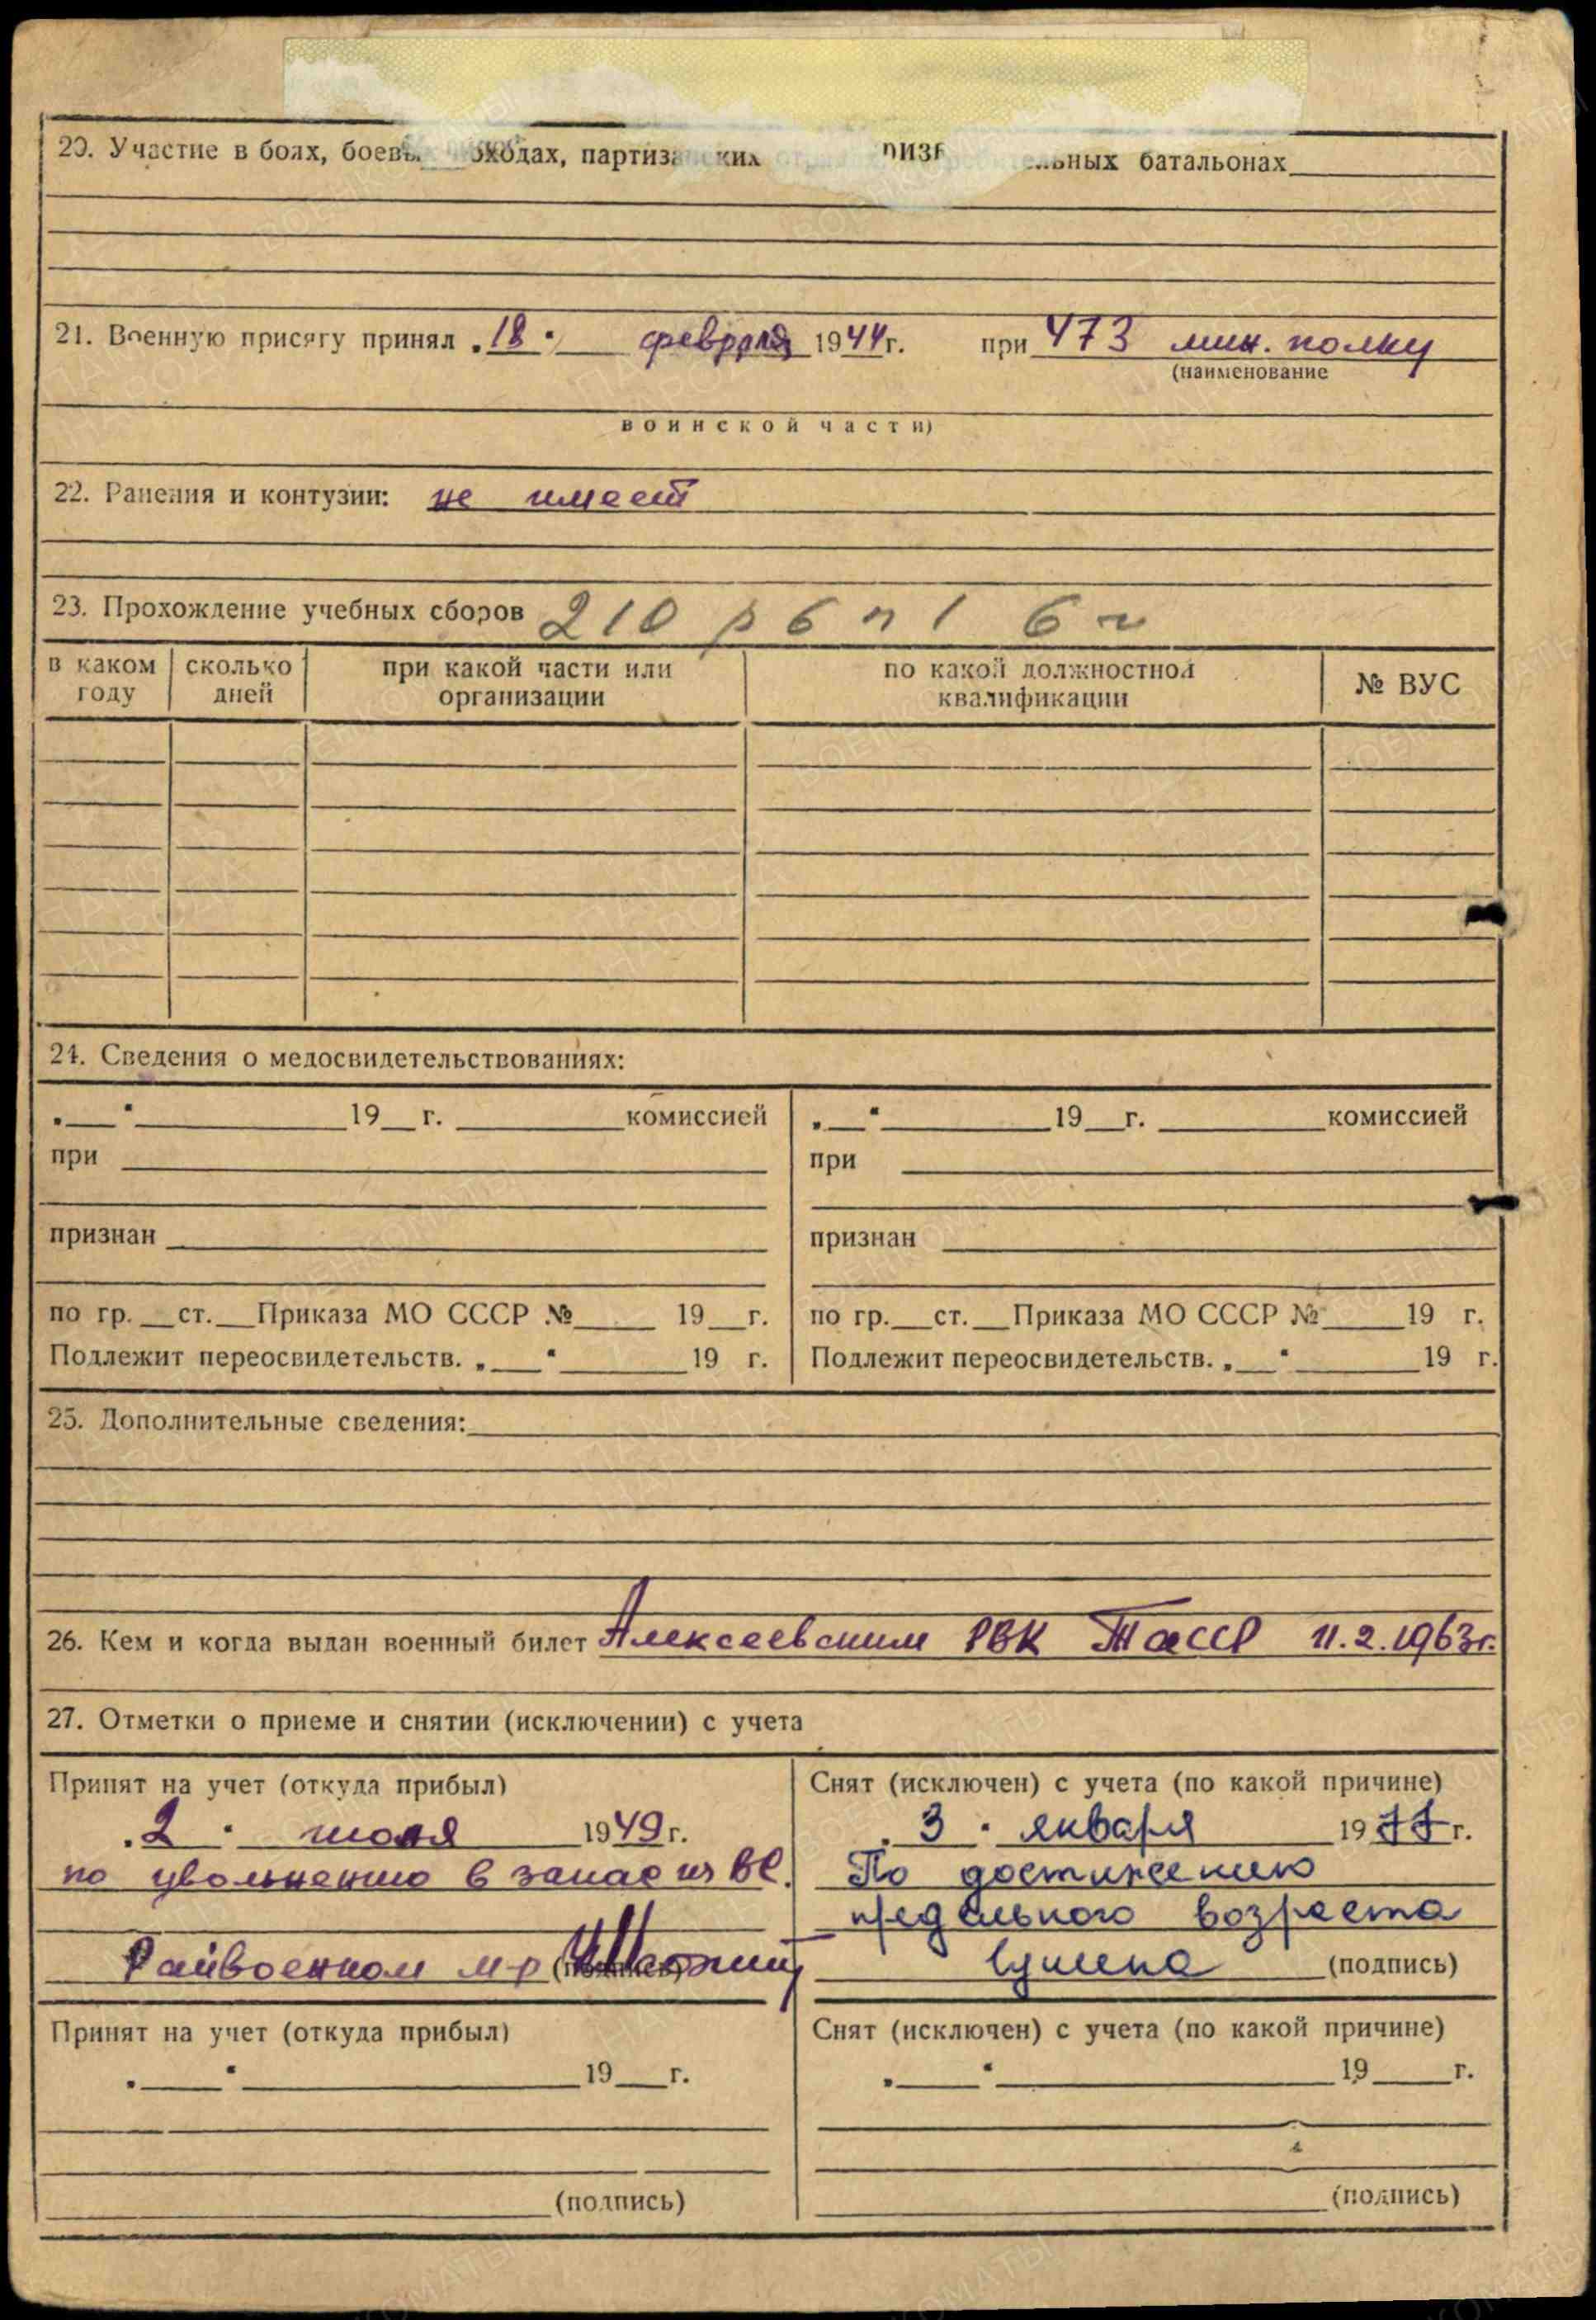 20. Участие в боях, боевых походах, партизанских батальонах
21. Военную присягу принял „18" февраля 1944 г. при 473 мин. полку
(наименование
воинской части)
22. Ранения и контузии: не имеет
23. Прохождение учебных сборов 210
в каком году
сколько дней
при какой части или организации
по какой должностной квалификации
№ ВУС
24. Сведения о медосвидетельствованиях:
„__" 19__г. комиссией
при
признан
по гр.__ст.__Приказа МО СССР №____ 19__г.
Подлежит переосвидетельств. „__" 19 г.
„__" 19__г. комиссией
при
признан
по гр.__ст.__Приказа МО СССР №____19 г.
Подлежит переосвидетельств. „__" 19 г.
25. Дополнительные сведения:
26. Кем и когда выдан военный билет Алексеевским РВК ТАССР 11.2.1963г.
27. Отметки о приеме и снятии (исключении) с учета
Принят на учет (откуда прибыл)
„2" июля 1949 г.
по увольнению в запас из ВС.
Райвоенком м-р (подпись)
Снят (исключен) с учета (по какой причине)
„3" января 1977 г.
По достижению
предельного возраста
(подпись)
Принят на учет (откуда прибыл)
„__" 19__г.
(подпись)
Снят (исключен) с учета (по какой причине)
„__" 19__г.
(подпись)